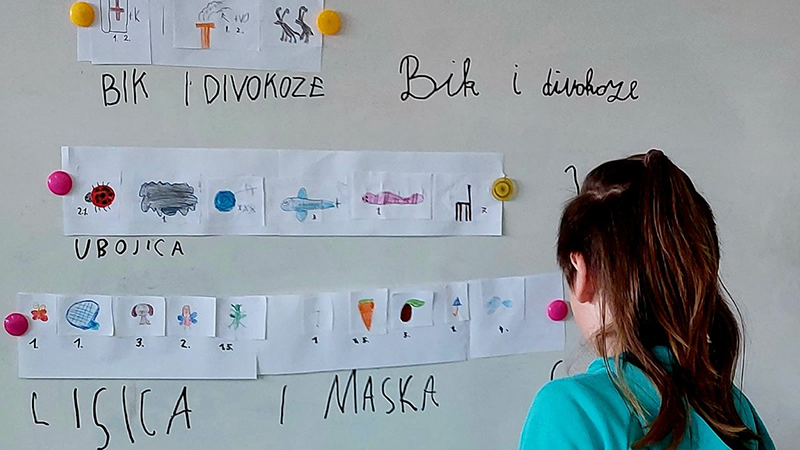 1. 2.
1. 2.
BIK I DIVOKOZE Bik i divokoze
2.1. 1. 3. 2. 2.
UBOJICA
1. 1. 3. 2. 1.5. 1. 1.5. 3. 2. 4.
LISICA I MASKA